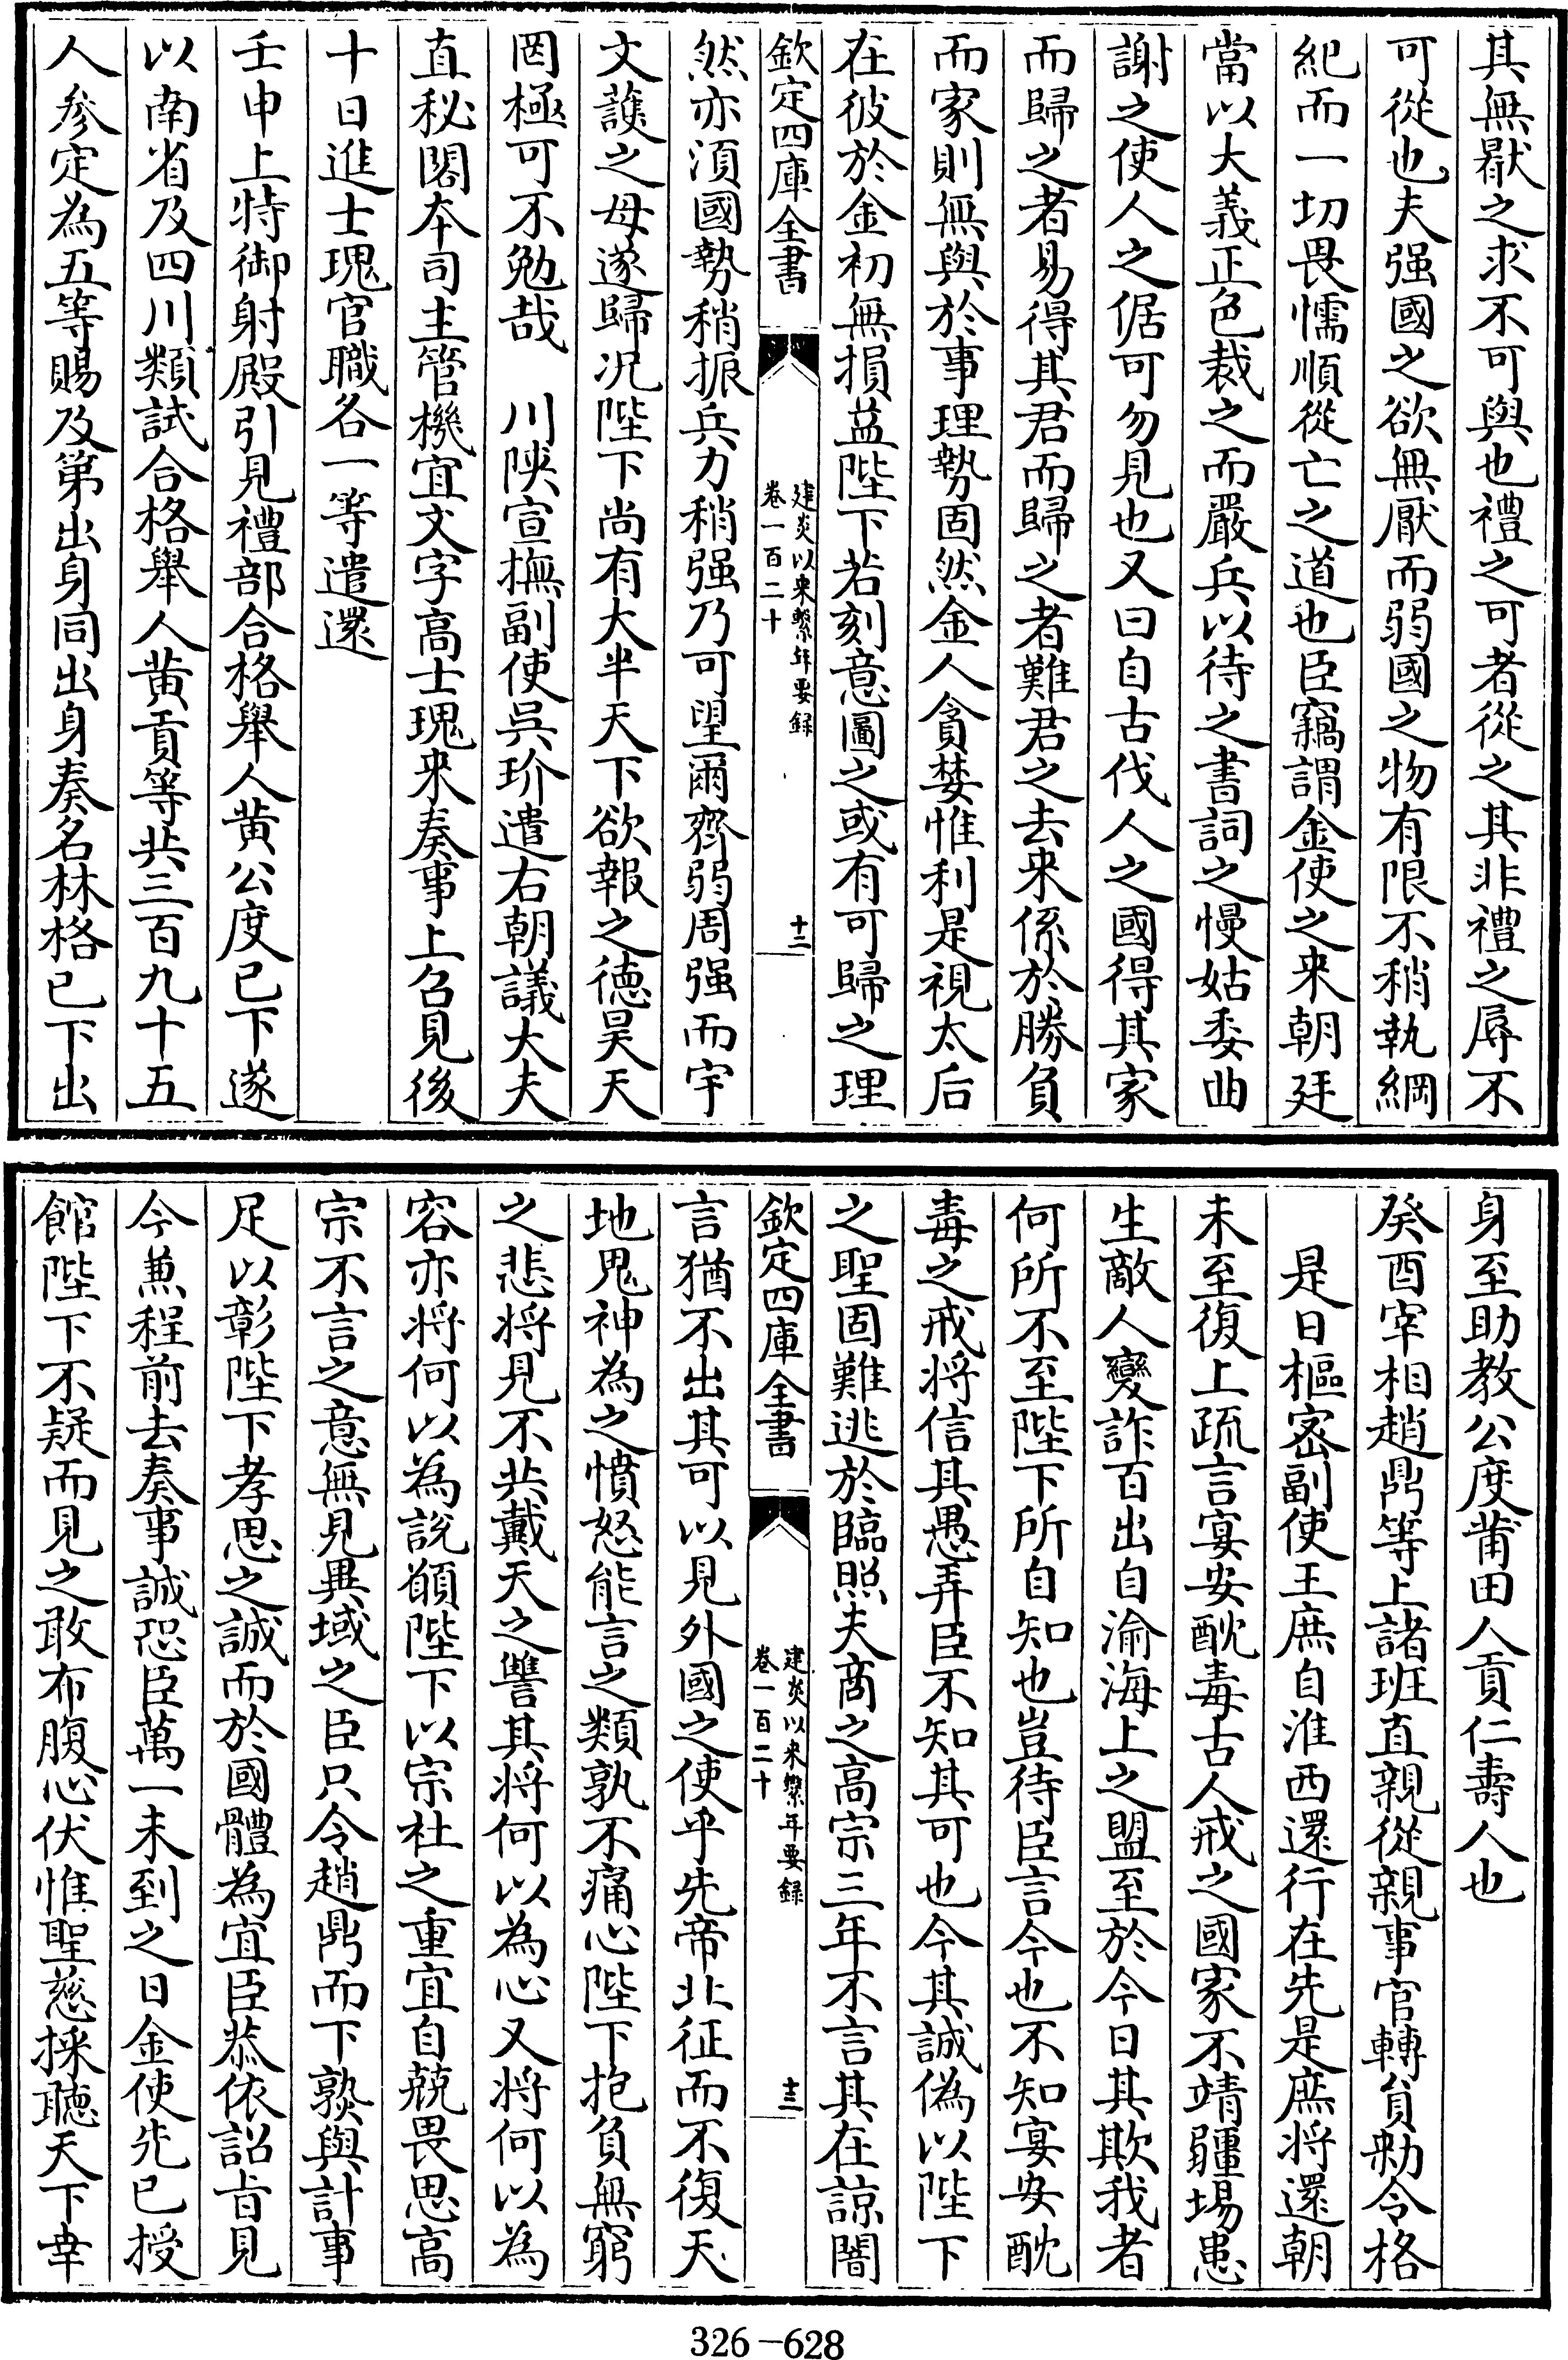 其無厭之求不可與也禮之可者從之其非禮之辱不
可從也夫强國之欲無厭而弱國之物有限不稍執綱
紀而一切畏懦順從亡之道也臣竊謂金使之来朝廷
當以大義正色裁之而嚴兵以待之書詞之慢姑委曲
謝之使人之倨可勿見也又曰自古伐人之國得其家
而歸之者易得其君而歸之者難君之去来係於勝負
而家則無與於事理勢固然金人貪婪惟利是視太后
在彼於金初無損益陛下若刻意圖之或有可歸之理
欽定四庫全書
建炎以来繫年要録
卷一百二十
十二
然亦須國勢稍振兵力稍强乃可望爾齊弱周强而宇
文護之母遂歸况陛下尚有大半天下欲報之德昊天
罔極可不勉哉　川陜宣撫副使吳玠遣右朝議大夫
直秘閣本司主管機宜文字高士瑰来奏事上召見後
十日進士瑰官職各一等遣還
壬申上特御射殿引見禮部合格舉人黄公度已下遂
以南省及四川類試合格舉人黄貢等共三百九十五
人參定為五等賜及第出身同出身奏名林格已下出
身至助教公度莆田人貢仁壽人也
癸酉宰相趙鼎等上諸班直親從親事官轉員勑令格
是日樞密副使王庶自淮西還行在先是庶將還朝
未至復上疏言宴安酖毒古人戒之國家不靖疆場患
生敵人變詐百出自渝海上之盟至於今日其欺我者
何所不至陛下所自知也豈待臣言今也不知宴安酖
毒之戒將信其愚弄臣不知其可也今其誠偽以陛下
之聖固難逃於臨照夫商之高宗三年不言其在諒闇
欽定四庫全書
建炎以来繫年要録
卷一百二十
十三
言猶不出其可以見外國之使乎先帝北征而不復天
地鬼神為之憤怒能言之類孰不痛心陛下抱負無窮
之悲將見不共戴天之讐其將何以為心又將何以為
容亦將何以為說願陛下以宗社之重宜自兢畏思高
宗不言之意無見異域之臣只令趙鼎而下熟與計事
足以彰陛下孝思之誠而於國體為宜臣恭依詔旨見
今兼程前去奏事誠恐臣萬一未到之日金使先已授
館陛下不疑而見之敢布腹心伏惟聖慈採聽天下幸
326-628